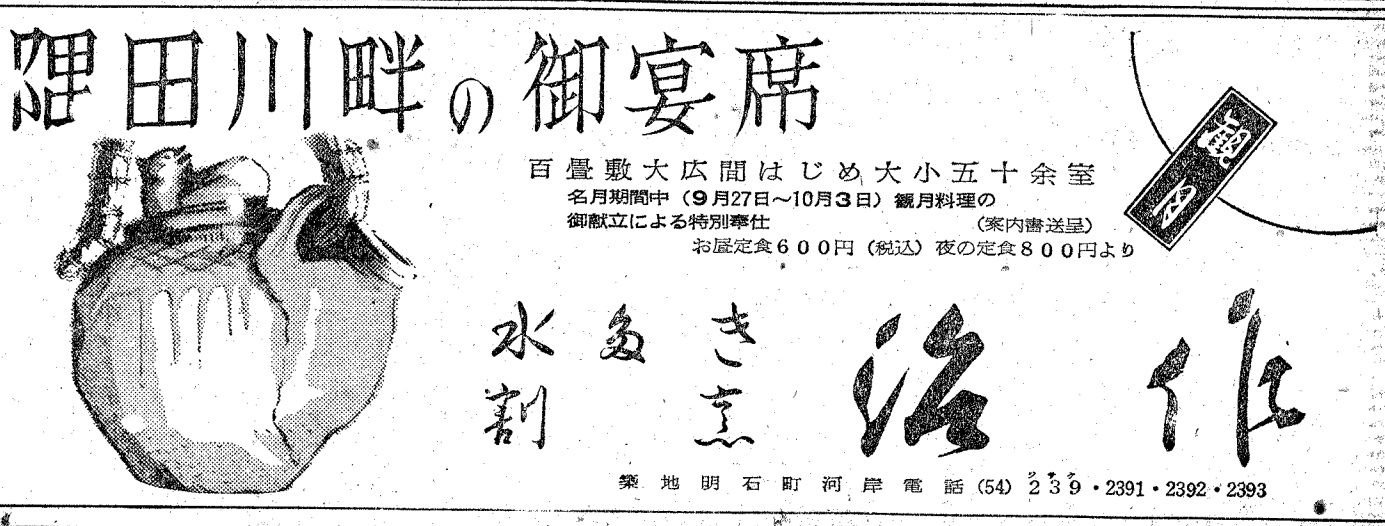 隅田川畔の御宴席
観月
百畳敷大広間はじめ大小五十余室
名月期間中(9月27日~10月3日)観月料理の
御献立による特別奉仕 (案内書送呈)
お昼定食600円(税込)夜の定食800円より
水多き
割烹
治作
築地明石町河岸電話(54)239・2391・2392・2393
ジサク